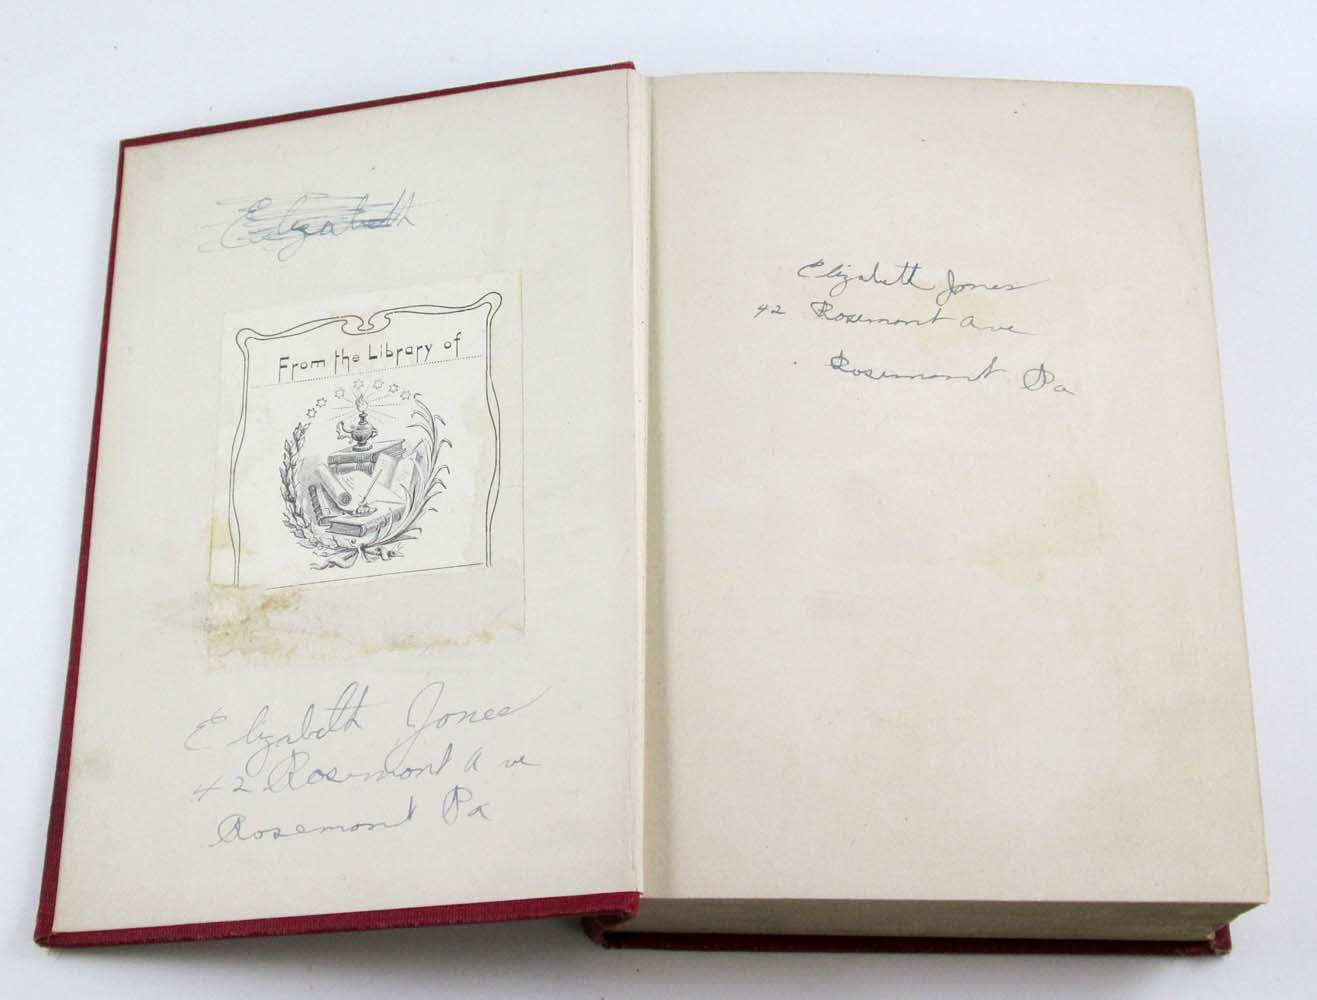 Elizabeth
From the Library of
Elizabeth Jones
42 Rosemont Ave
Rosemont Pa
Elizabeth Jones
42 Rosemont Ave
Rosemont Pa